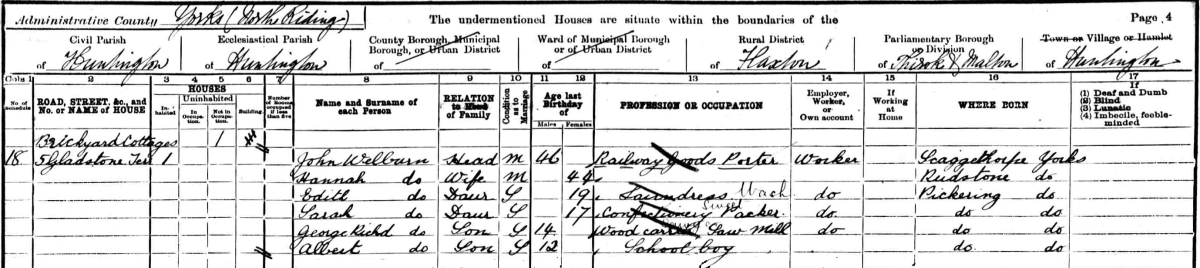 Administrative County Yorks (North Riding) The undermentioned Houses are situate within the boundaries of the Page, 4
Civil Parish Ecclesiastical Parish County Borough, Municipal Borough, or Urban District Ward of Municipal Borough or of Urban District Rural District Parliamentary Borough or Division Town or Village or Hamlet
of Huntington of Huntington of of of Haxton of Thirsk & Malton of Huntington
Cols 1 2 3 4 5 6 7 8 9 10 11 12 13 14 15 16 17
No. of Schedule ROAD, STREET, &c., and No. or NAME of HOUSE HOUSES Inhabited Uninhabited In Occupation. Not in Occupation. Building. Number of Rooms occupied if less than five Name and Surname of each Person RELATION to Head of Family Condition as to Marriage Age last Birthday of Males Females PROFESSION OR OCCUPATION Employer, Worker, or Own account If Working at Home WHERE BORN If (1) Deaf and Dumb (2) Blind (3) Lunatic (4) Imbecile, feeble-minded
Brickyard Cottages 1
18 5 Gladstone Terr 1 John Welburn Head M 46 Railway Goods Porter Worker Scaggethorpe Yorks
Hannah do Wife M 44 Rudstone do
Edith do Daur S 19 Laundress Wash do Pickering do
Sarah do Daur S 17 Confectionery Packer do do do
George Richd do Son S 14 Wood Saw Mill do do do
Albert do Son S 12 School boy do do